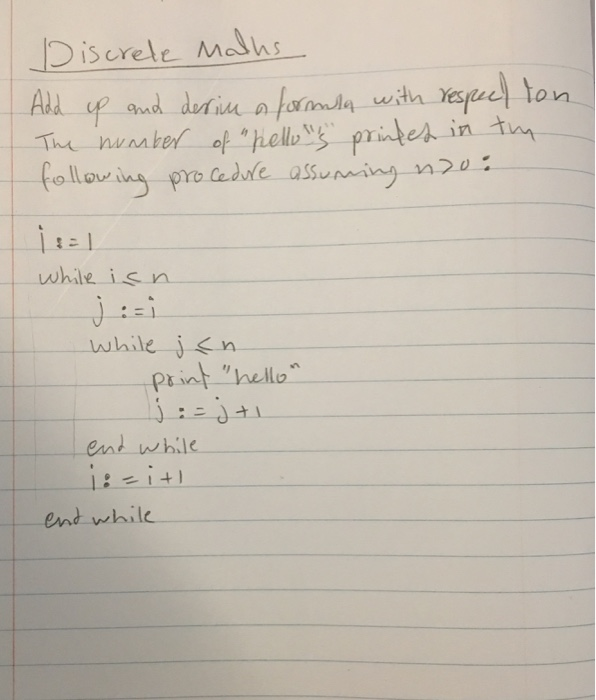 Discrete Maths
Add up and derive a formula with respect to n
The number of "hello"s printed in the
following procedure assuming n>0:
i:=1
while i≤n
j:=i
while j≤n
print "hello"
j:=j+1
end while
i:=i+1
end while